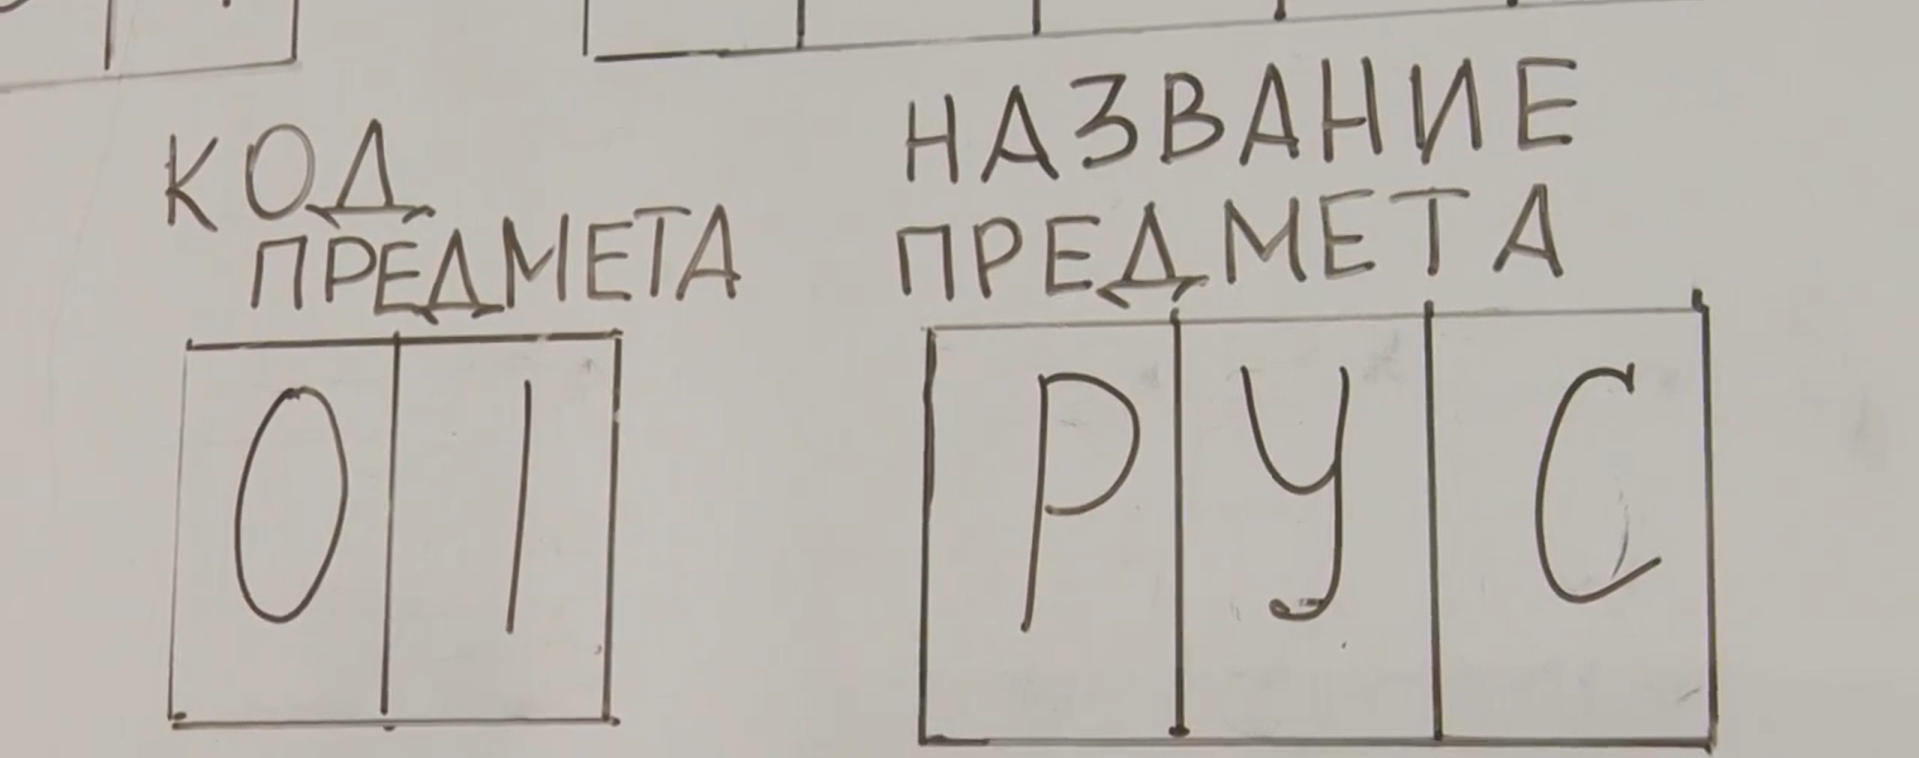 КОД
ПРЕДМЕТА
01
НАЗВАНИЕ
ПРЕДМЕТА
РУС